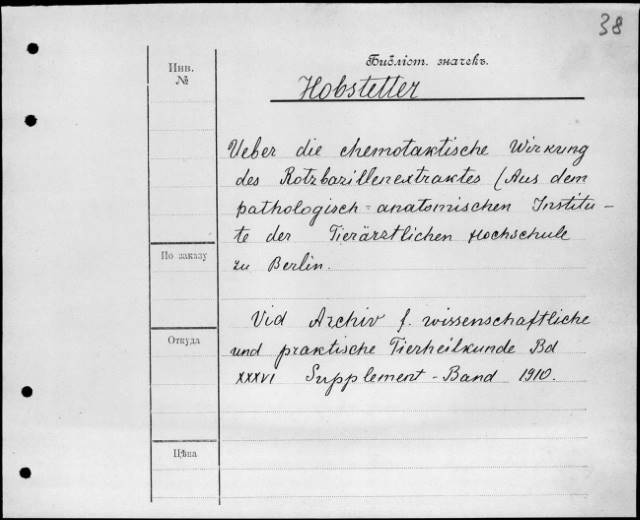 38
Библіот. значекъ.
Инв.
№
Hobstetter
Ueber die chemotaktische Wirkung
des Rotzbazillenextraktes (Aus dem
pathologisch-anatomischen Institu-
te der Tierärztlichen Hochschule
zu Berlin.
По заказу
Vid Archiv f. wissenschaftliche
Откуда
und praktische Tierheilkunde Bd
XXXVI Supplement-Band 1910.
Цѣна